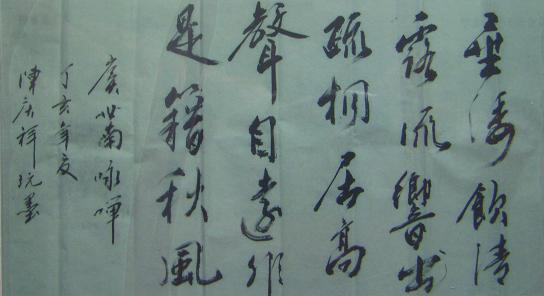 垂緌飲清
露流響出
疏桐居高
聲自遠非
是籍秋風
虞世南咏蟬
丁亥年夏
陳庆祥玩墨